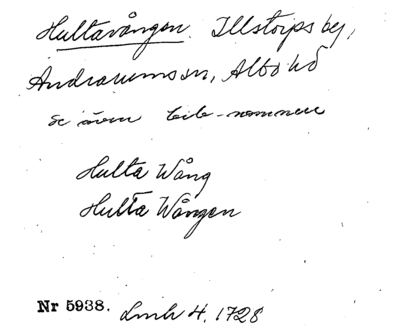 Hultavången. Illstorps by,
Andrarums sn, Albo hd
Se även bib-namnen
Hulta Wång
Hulta Wången
Nr 5938. Lmh 4. 1728